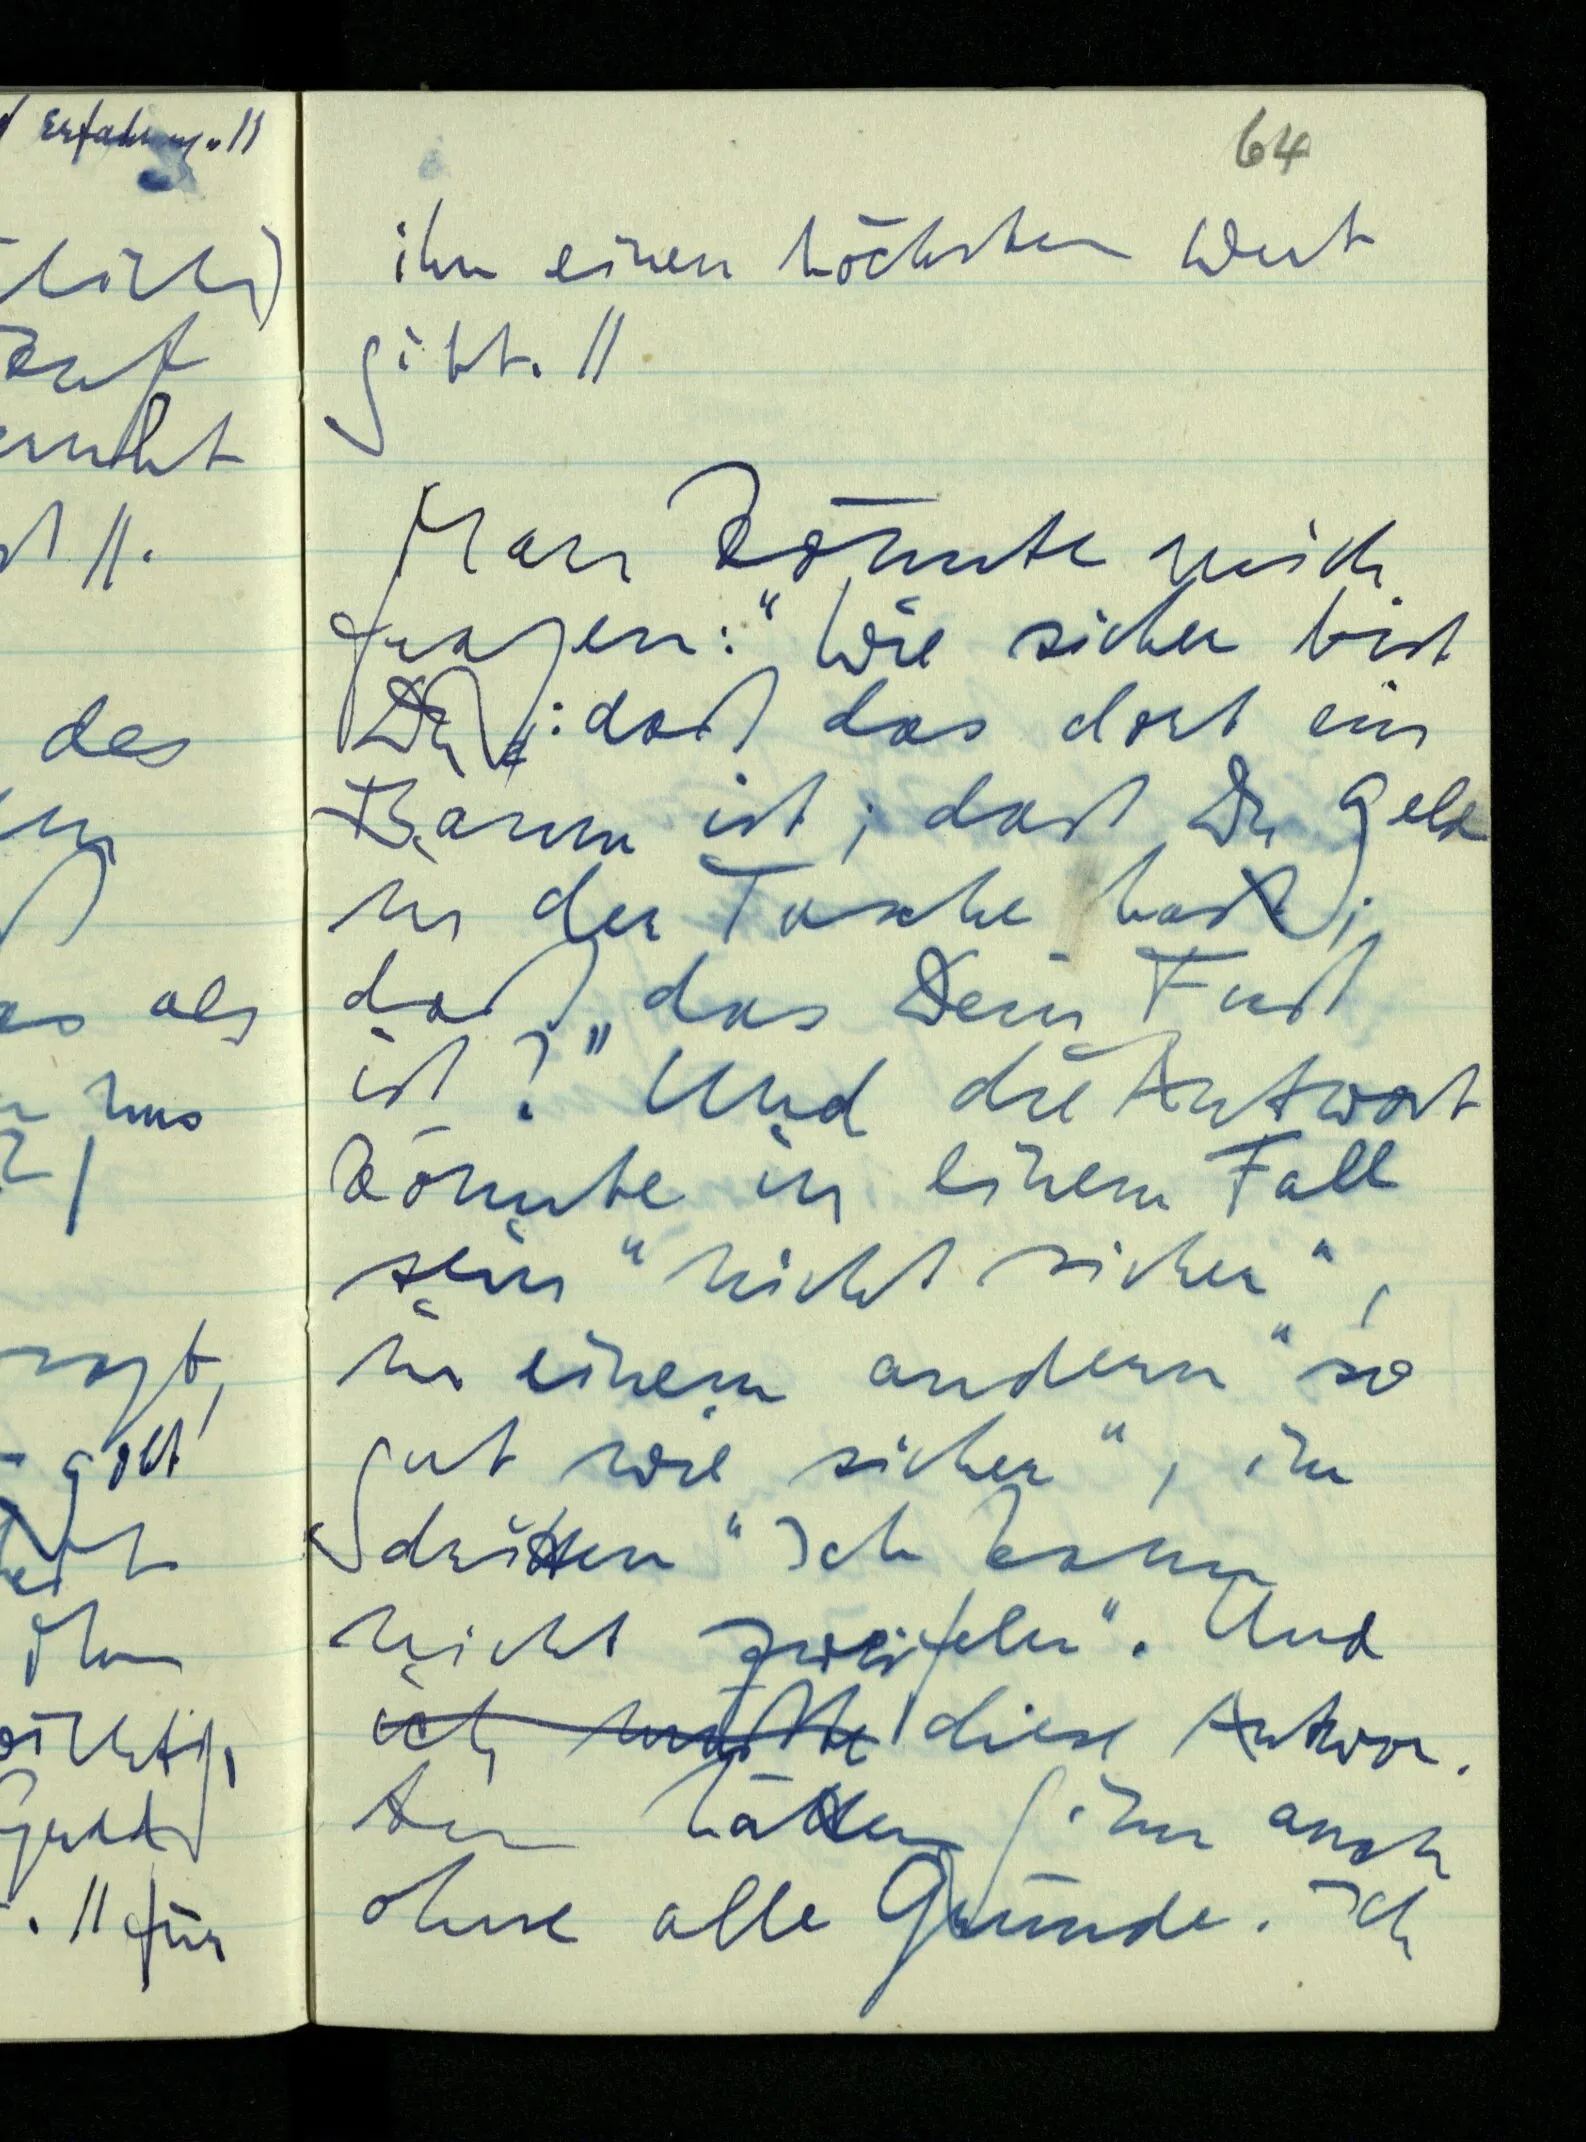 Erfahrung. //
des
as als
uns
gibt
ihm
wichtig,
. // für
64
ihm einen höchsten Wert
gibt. //
Man könnte mich
fragen: "Wie sicher bist
Du: daß das dort ein
Baum ist; daß Du Geld
in der Tasche hast;
daß das Dein Fuß
ist?" Und die Antwort
könnte in einem Fall
sein "nicht sicher",
in einem andern "so
gut wie sicher", im
dritten "Ich kann
nicht zweifeln". Und
ich müßte diese Antwor-
ten hätten Sinn auch
ohne alle Gründe. Ich